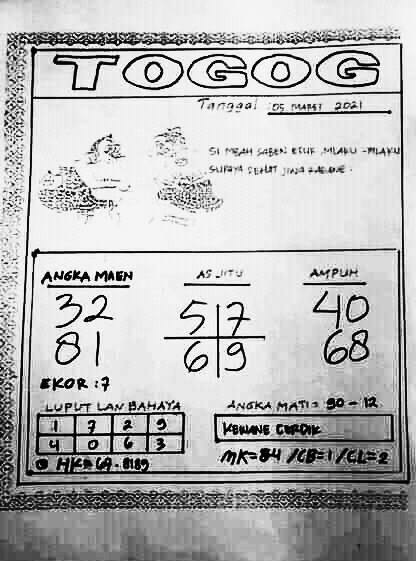 TOGOG
Tanggal : 05 MARET 2021
SI MBAH SABEN ESUK MLAKU - MLAKU
SUPAYA SEHAT JIWA RAGANE .
ANGKA MAEN
AS JITU
AMPUH
32
5 7
40
81
6 9
68
EKOR : 7
LUPUT LAN BAHAYA
ANGKA MATI = 90 - 12
1 7 2 9
KEWANE CERDIK
4 0 6 3
HK = 69 - 8189
MK=84 /CB=1/CL=2